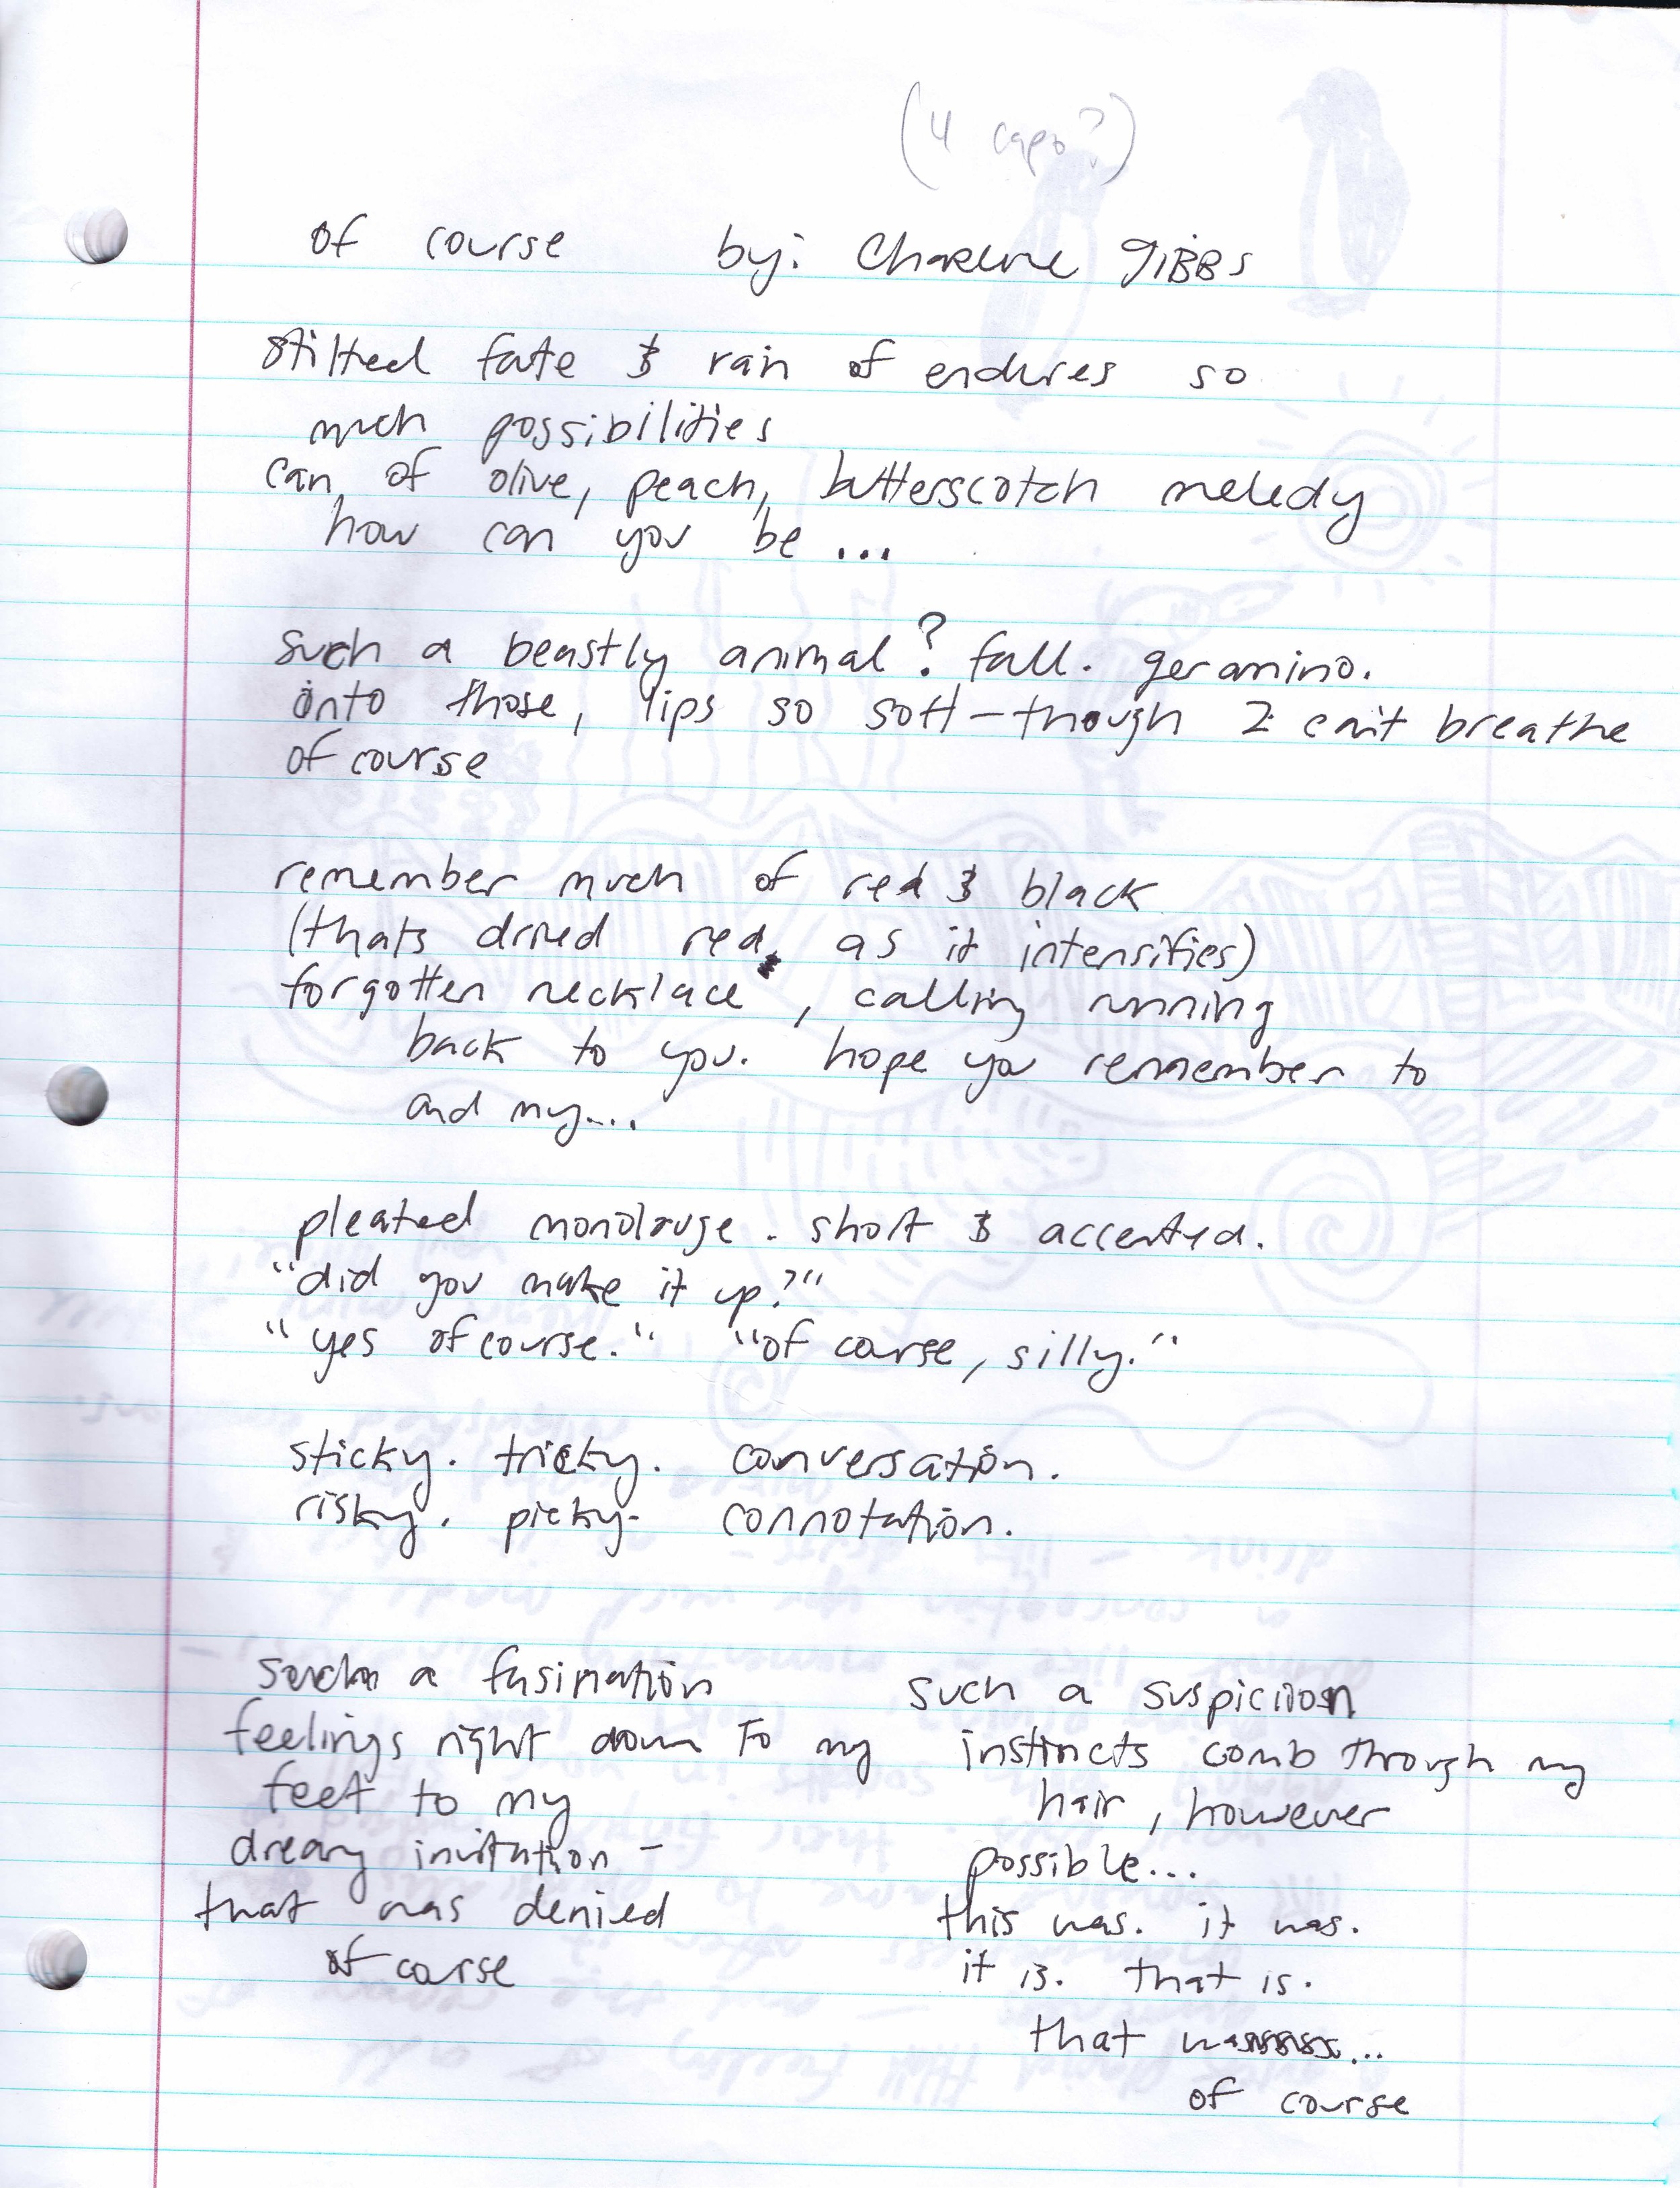 (4 capo?)
of course by: Charlene GIBBS
stilted fate & rain of endures so
much possibilities
can of olive, peach, butterscotch meledy
how can you be ...
such a beastly animal? fall. geranino.
onto those, lips so soft - though I can't breathe
of course
remember much of red & black
(thats dried red, as it intensifies)
forgotten necklace, calling running
back to you. hope you remember to
and my....
pleated monolouge. short & accented.
"did you make it up?"
"yes of course." "of course, silly."
sticky. tricky. conversation.
risky. picky. connotation.
such a fasination
feelings right down to my
feet to my
dreary invitation -
that was denied
of course
such a suspicion
instincts comb through my
hair, however
possible...
this was. it was.
it is. that is.
that wasssss...
of course